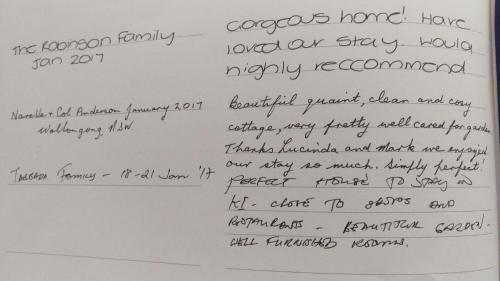 The Robinson Family
Jan 2017
Gorgeous home! Have
loved our stay. Would
highly reccommend
Narelle + Col Anderson January 2017
Wollongong NSW.
Beautiful quaint, clean and cosy
cottage, very pretty well cared for garden
Thanks Lucinda and Mark we enjoyed
our stay so much. Simply perfect!
Family - 18-21 Jan '17
PERFECT HOUSE TO STAY IN
KI - CLOSE TO SHOPS AND
RESTAURANTS - BEAUTIFUL GARDEN -
WELL FURNISHED ROOMS.